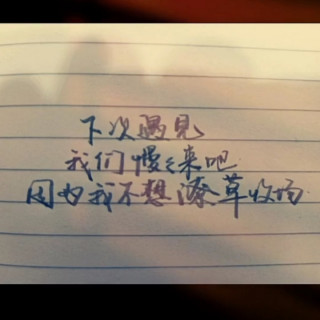 下次遇见
我们慢慢来吧
因为我不想潦草收场